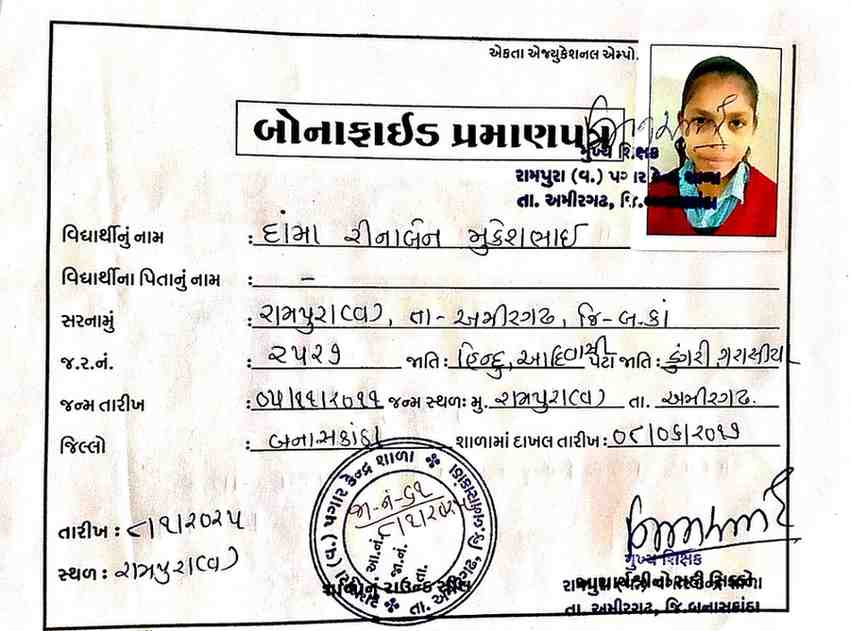 એકતા એજ્યુકેશનલ એમ્પો.
બોનાફાઈડ પ્રમાણપત્ર
મુખ્ય શિક્ષક
રામપુરા (વ.) પગાર કેન્દ્ર શાળા
તા. અમીરગઢ, જિ.બનાસકાંઠા
વિદ્યાર્થીનું નામ : ડાંમા રીનાબેન મુકેશભાઈ
વિદ્યાર્થીના પિતાનું નામ : –
સરનામું : રામપુરા(વ), તા-અમીરગઢ, જિ-બ.કાં
જ.ર.નં. : ૨૫૨૭ જાતિ : હિન્દુ, આદિવાસી પેટા જાતિ : ડુંગરી ગરાસીયા
જન્મ તારીખ : ૦૫/૧૧/૨૦૧૧ જન્મ સ્થળઃ મુ. રામપુરા(વ) તા. અમીરગઢ.
જિલ્લો : બનાસકાંઠા શાળામાં દાખલ તારીખ : ૦૮/૦૬/૨૦૧૭
રામપુરા (વ.) પગાર કેન્દ્ર શાળા
તા. અમીરગઢ, જિ. બનાસકાંઠા
જા-નં-૬૧
૮/૧/૨૦૨૫
આ.નં.
જા.નં.
તા.
તારીખ : ૮/૧/૨૦૨૫
સ્થળ : રામપુરા(વ)
શાળાનું રાઉન્ડ સીલ
મુખ્ય શિક્ષક
આચાર્યશ્રીની સહી સિક્કો
રામપુરા (વ.) પગાર કેન્દ્ર શાળા
તા. અમીરગઢ, જિ.બનાસકાંઠા